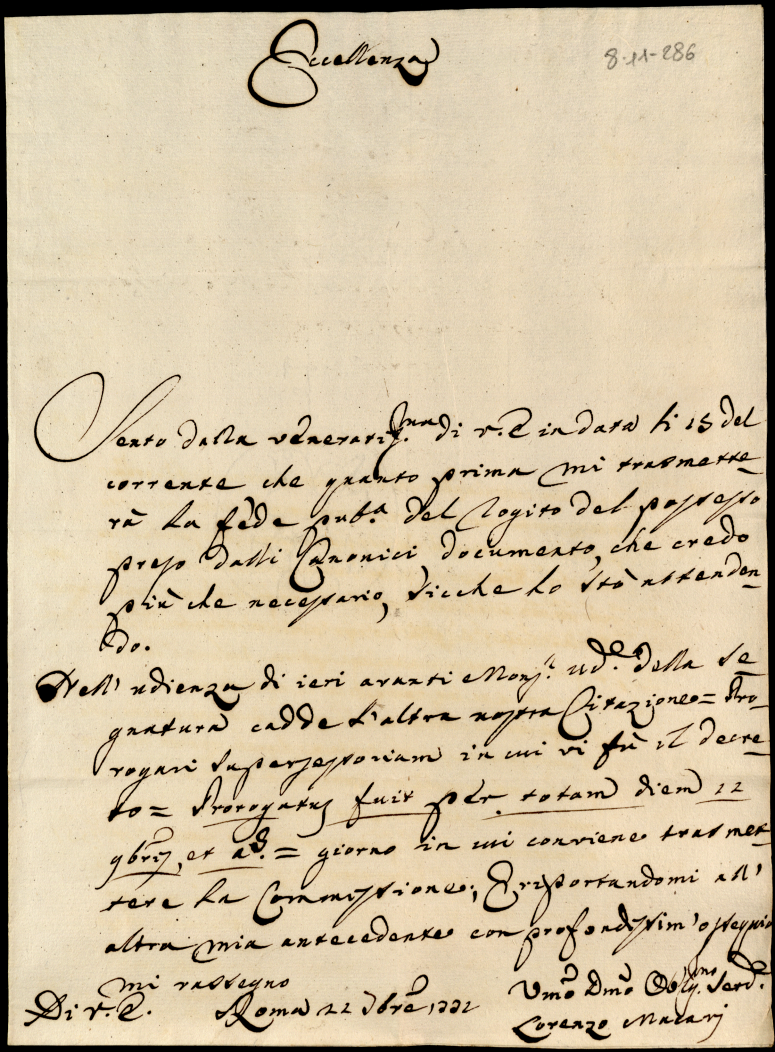 Eccellenza
8-11-286
Sento dalla veneratiss.ma di V.E in data li 15 del
corrente che quanto prima mi trasmette-
rà la fede pub.a del Rogito del possesso
preso dalli Canonici, documento, che credo
più che necessario, sicche lo stò attenden-
do.
Nell' udienza di ieri avanti Monsig.r Ud.e della Se-
gnatura cadde l'altra nostra Citazione = Pro-
rogari Supersessoriam in cui vi fù il decre-
to = Prorogatus fuit per totam diem 22
9bris, et as. = giorno in cui conviene trasmet-
tere la Commissione; E riportandomi all'
altra mia antecedente con profondissim'ossequio
mi rassegno
Di V.E. Roma 22 8bre 1772 Umo Dmo Oblig.mo Serd.e
Lorenzo Macarj